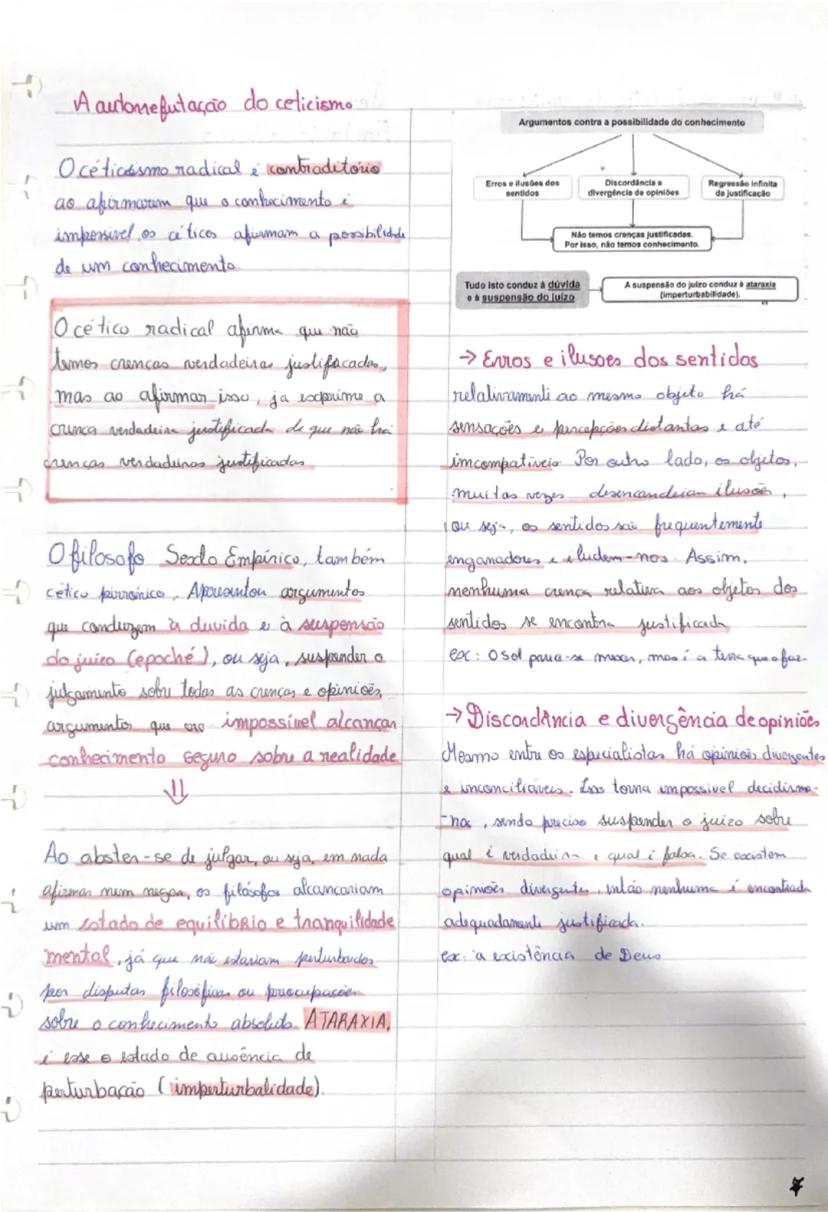 A autorrefutação do ceticismo
O céticissmo radical é contraditório
ao afirmarem que o conhecimento é
impossível, os céticos afirmam a possibilidade
de um conhecimento
O cético radical afirma que não
temos crenças verdadeiras justificadas,
mas ao afirmar isso, ja exprime a
crença verdadeira justificada de que não há
crenças verdadeiras justificadas
O filosofo Sexto Empírico, também
cético pirrónico, Apresentou argumentos
que conduzem à duvida e à suspensão
do juizo (epoché), ou seja, suspender o
julgamento sobre todas as crenças e opiniões,
argumentos que era impossível alcançar
conhecimento seguro sobre a realidade
⇓
Ao abster-se de julgar, ou seja, em nada
afirmar nem negar, os filósofos alcançariam
um estado de equilíbrio e tranquilidade
mental, já que não estariam perturbados
por disputas filosóficas ou preocupações
sobre o conhecimento absoluto. ATARAXIA,
é esse o estado de ausência de
perturbação (imperturbalidade).
Argumentos contra a possibilidade do conhecimento
Erros e ilusões dos
sentidos
Discordância e
divergência de opiniões
Regressão infinita
da justificação
Não temos crenças justificadas.
Por isso, não temos conhecimento.
Tudo isto conduz à dúvida
e à suspensão do juízo
A suspensão do juízo conduz à ataraxia
(imperturbabilidade).
→ Erros e ilusões dos sentidos
relativamente ao mesmo objeto há
sensações e percepções distantas e até
imcompatíveis Por outro lado, os objetos,
muitas vezes desencandeiam ilusões,
ou seja, os sentidos são frequentemente
enganadores e iludem-nos. Assim,
nenhuma crença relativa aos objetos dos
sentidos se encontra justificada
ex: O sol parece-se mexer, mas é a terra que o faz.
→ Discordância e divergência de opiniões
Mesmo entre os especialistas há opiniões divergentes
e inconciliáveis. Isso torna impossivel decidirmo-
-nos, sendo preciso suspender o juizo sobre
qual é verdadeira e qual é falsa. Se existem
opiniões divergentes, então nenhuma é encontrada
adequadamente justificada.
ex: a existência de Deus